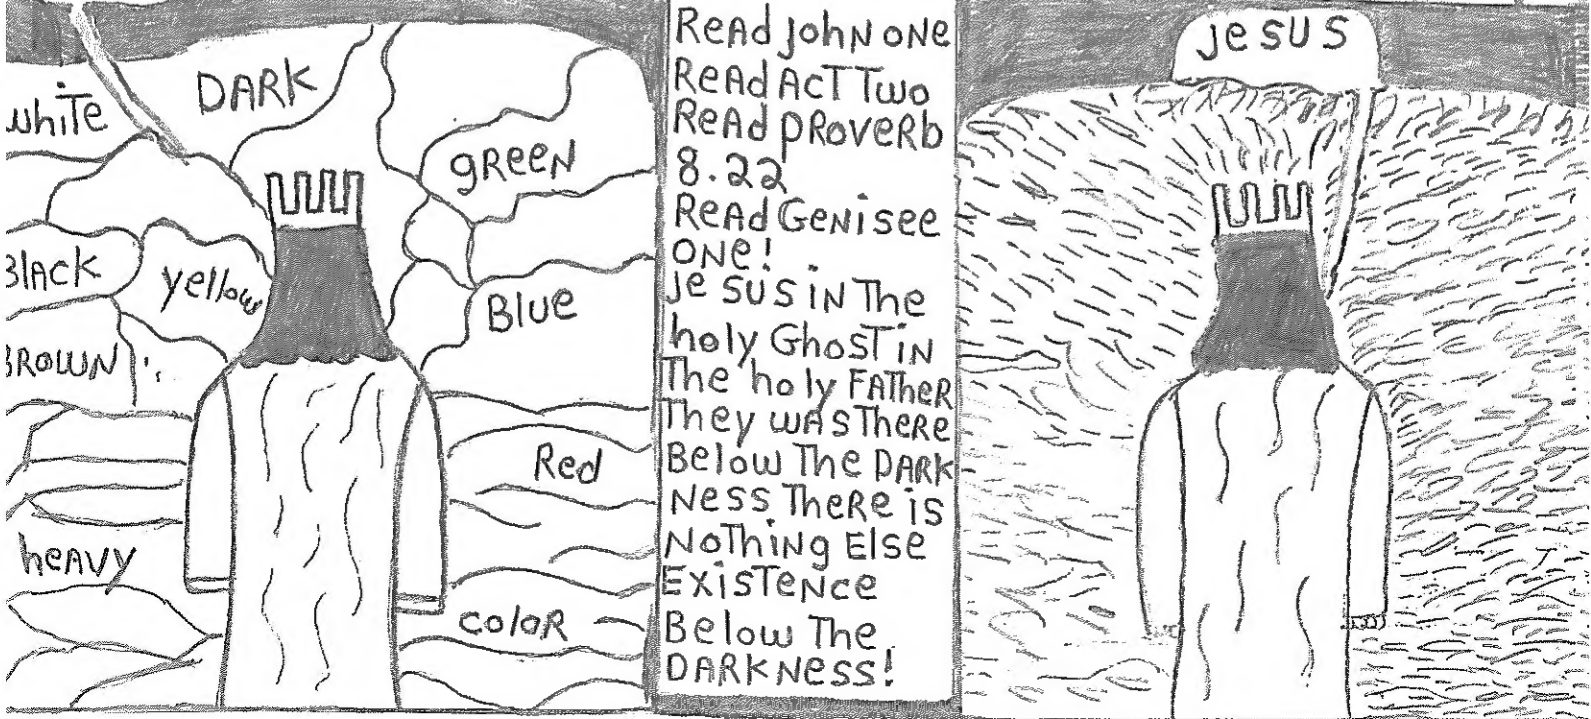 white
DARK
gREEN
BlAck
yellow
Blue
BROWN
Red
heAVY
coloR
ReAd JohN ONE
ReAd AcT Two
ReAd pRoveRb
8.22
ReAd GeNisee
ONE!
Je sus iN The
holy GhosT iN
The holy FATheR
They wAs TheRe
Below The DARK
Ness TheRe is
NoThiNg Else
ExisTeNce
Below The
DARKNess!
Jesus